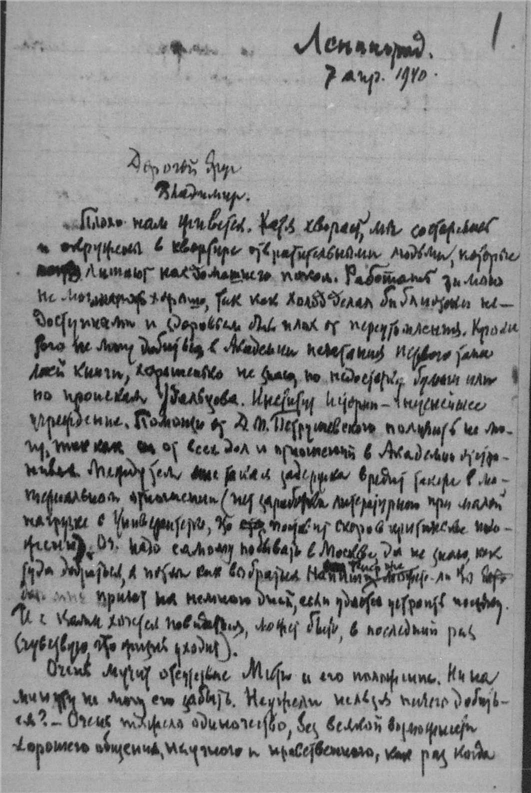 1
Ленинград.
7 апр. 1940.
Дорогой друг
Владимир.
Плохо нам живется. Катя хворает, мы состарились
и окружены в квартире отвратительными людьми, которые
лишают нас домашнего покоя. Работать зимою
не мог хорошо, так как холод делал библиотеки не-
доступными и здоровье было плохо от переутомления. Кроме
того не могу добиться в Академии печатания первого тома
моей книги, хорошенько не знаю, по недостатку бумаги или
по проискам Удальцова. Институт истории - гнуснейшее
учреждение. Помощи от Д. М. Петрушевского получить не мо-
гу, так как он от всех дел и отношений в Академии отстра-
нился. Между тем такая задержка вредит также в ма-
териальном отношении (нет заработка литературного при малой
нагрузке в Университете, что поставит скоро в критическое поло-
жение). Оч. надо самому побывать в Москве, да не знаю, как
туда добраться, а потом как выбраться
приют на немного дней, если удастся устроить поездку.
И с Вами хочется повидаться, может быть, в последний раз
(чувствую, что жизнь уходит).
Очень мучит отсутствие и его положение. Ни на
минуту не могу его забыть. Неужели нельзя ничего добить-
ся? - Очень тяжело одиночество, без всякой возможности
хорошего общения, научного и нравственного, как раз когда